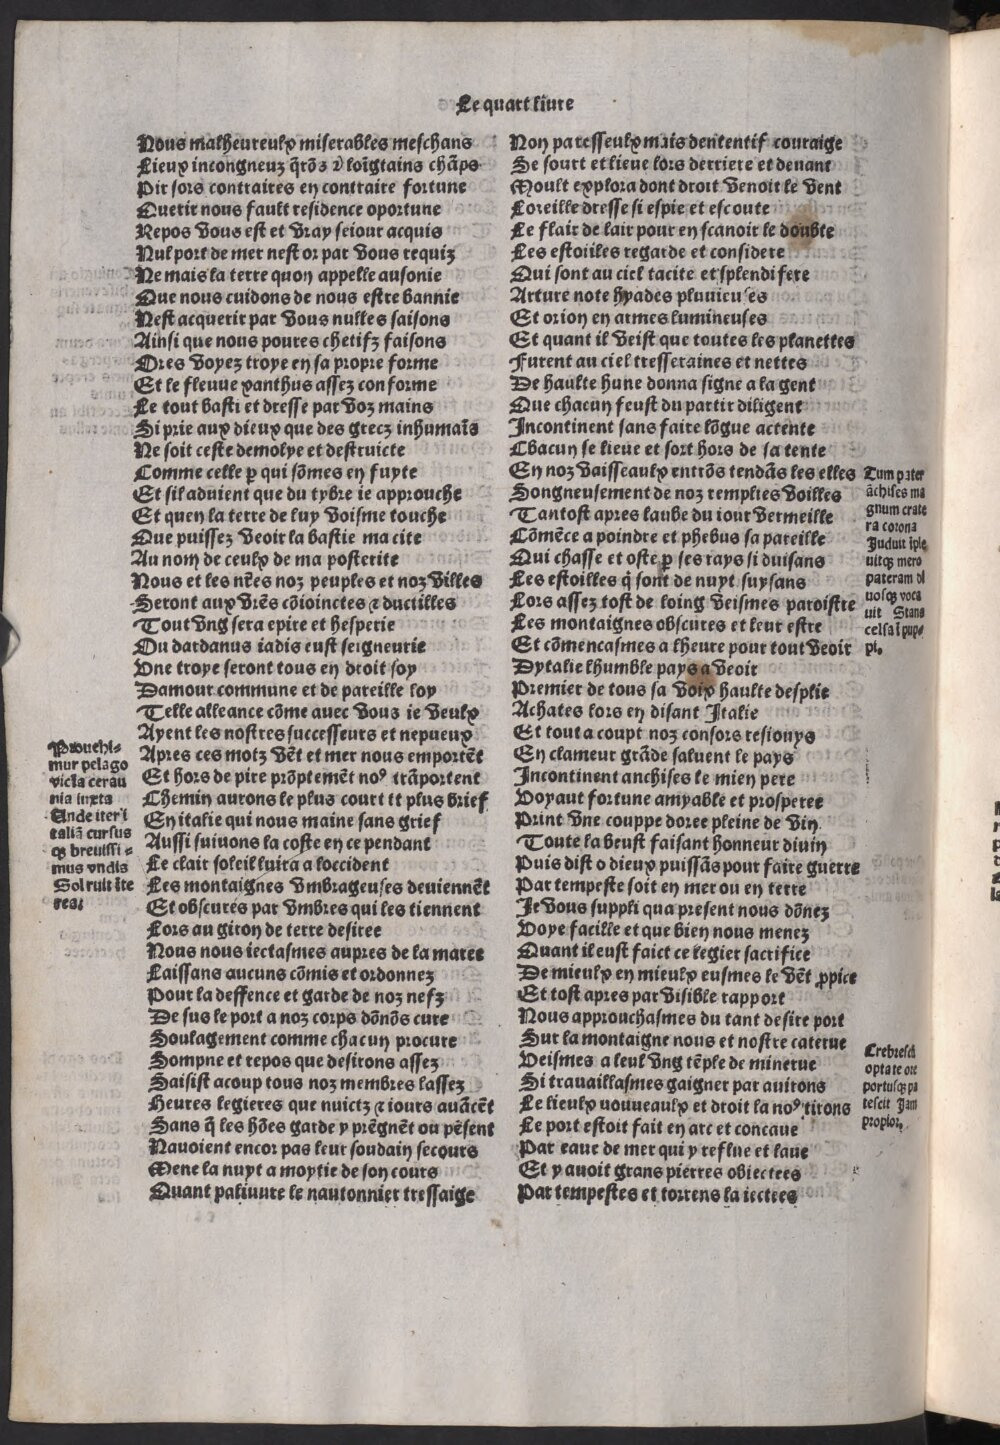 Le quart liure
Nous malheureulx miserables meschans
Lieux incongneuz q̄rōs ⁊ loīgtains chāps
Pir sors contraires en contraire fortune
Querir nous fault residence oportune
Repos vous est et vray seiour acquis
Nul port de mer nest or par vous requiz
Ne mais la terre quon appelle ausonie
Que nous cuidons de nous estre bannie
Nest acquerir par vous nulles saisons
Ainsi que nous poures chetifz faisons
Ores voyez troye en sa propre forme
Et le fleuue xanthus assez conforme
Le tout basti et dresse par voz mains
Si prie aux dieux que des grecz inhumaīs
Ne soit ceste demolye et destruicte
Comme celle ꝑ qui sōmes en fuyte
Et sil aduient que du tybre ie approuche
Et quen la terre de luy voisine touche
Que puissez veoir la bastie ma cite
Au nom de ceulx de ma posterite
Nous et les nr̄es noz peuples et noz villes
Seront aux vr̄es cōioinctes ⁊ ductilles
Tout vng sera epire et hesperie
Ou dardanus iadis eust seigneurie
Vne troye seront tous en droit soy
Damour commune et de pareille loy
Telle alleance cōme auec vous ie veulx
Ayent les nostres successeurs et nepueux
Apres ces motz vēt et mer nous emportēt
Et hors de pire prōptemēt noꝰ trāportent
Chemin aurons le plus court tt plus brief
En italie qui nous maine sans grief
Aussi suiuons la coste en ce pendant
Le clair soleil luira a loccident
Les montaignes vmbrageuses deuiennēt
Et obscures par vmbres qui les tiennent
Lors au giron de terre desiree
Nous nous iectasmes aupres de la maree
Laissans aucuns cōmis et ordonnez
Pour la deffence et garde de noz nefz
De sus le port a noz corps dōnōs cure
Soulagement comme chacun procure
Sompne et repos que desirons assez
Saisist acoup tous noz membres lassez
Heures legieres que nuictz ⁊ iours auācēt
Sans q̄ les hōes garde y prēgnēt ou pēsent
Nauoient encor pas leur soudain secours
Mene la nuyt a moytie de son cours
Quant paliuure le nautonnier tressaige
Prouehi-
mur pelago
vicīa cerau
nia iuxta
Unde iter ī
italiā cursus
qꝫ breuissi-
mus vndis
Sol ruit īte
rea
Non paresseulx mais dententif couraige
Se sourt et lieue lors derriere et deuant
Moult explora dont droit venoit le vent
Loreille dresse si espie et escoute
Le flair de lair pour en scauoir le doubte
Les estoilles regarde et considere
Qui sont au ciel tacite et splendifere
Arture note hyades pluuieuses
Et orion en armes lumineuses
Et quant il veist que toutes les planettes
Furent au ciel tresseraines et nettes
De haulte hune donna signe a la gent
Que chacun feust du partir diligent
Incontinent sans faire lōgue actente
Chacun se lieue et sort hors de sa tente
En noz vaisseaulx entrōs tendās les elles
Songneusement de noz remplies voilles
Tantost apres laube du iour vermeille
Cōmēce a poindre et phebus sa pareille
Qui chasse et oste ꝑ ses rays si duisans
Les estoilles q̄ sont de nuyt suysans
Lors assez tost de loing veismes paroistre
Les montaignes obscures et leur estre
Et cōmencasmes a lheure pour tout veoir
Dytalie lhumble pays a veoir
Premier de tous sa voix haulte desplie
Achates lors en disant Italie
Et tout a coupt noz consors resiouys
En clameur grāde saluent le pays
Incontinent anchises le mien pere
Voyant fortune amyable et prosperee
Print vne couppe doree pleine de vin
Toute la beust faisant honneur diuin
Puis dist o dieux puissās pour faire guerre
Par tempeste soit en mer ou en terre
Je vous suppli qua present nous dōnez
Voye facille et que bien nous menez
Quant il eust faict ce legier sacrifice
De mieulx en mieulx eusmes le vēt ꝓpice
Et tost apres par visible rapport
Nous approuchasmes du tant desire port
Sur la montaigne nous et nostre caterue
Veismes a leul vng tēple de minerue
Si trauaillasmes gaigner par auirons
Le lieulx nouueaulx et droit la noꝰ tirons
Le port estoit fait en arc et concaue
Par eaue de mer qui y reflue et laue
Et y auoit grans pierres obiectees
Par tempestes et torrens la iectees
Tum pater
āchises ma
gnum crate
ra corona
Induit īple
uitqꝫ mero
pateram di
uosqꝫ voca
uit Stans
celsa ī pup-
pi.
Crebrescū
optate ore
portusqꝫ pa
tescit Jam
propior,